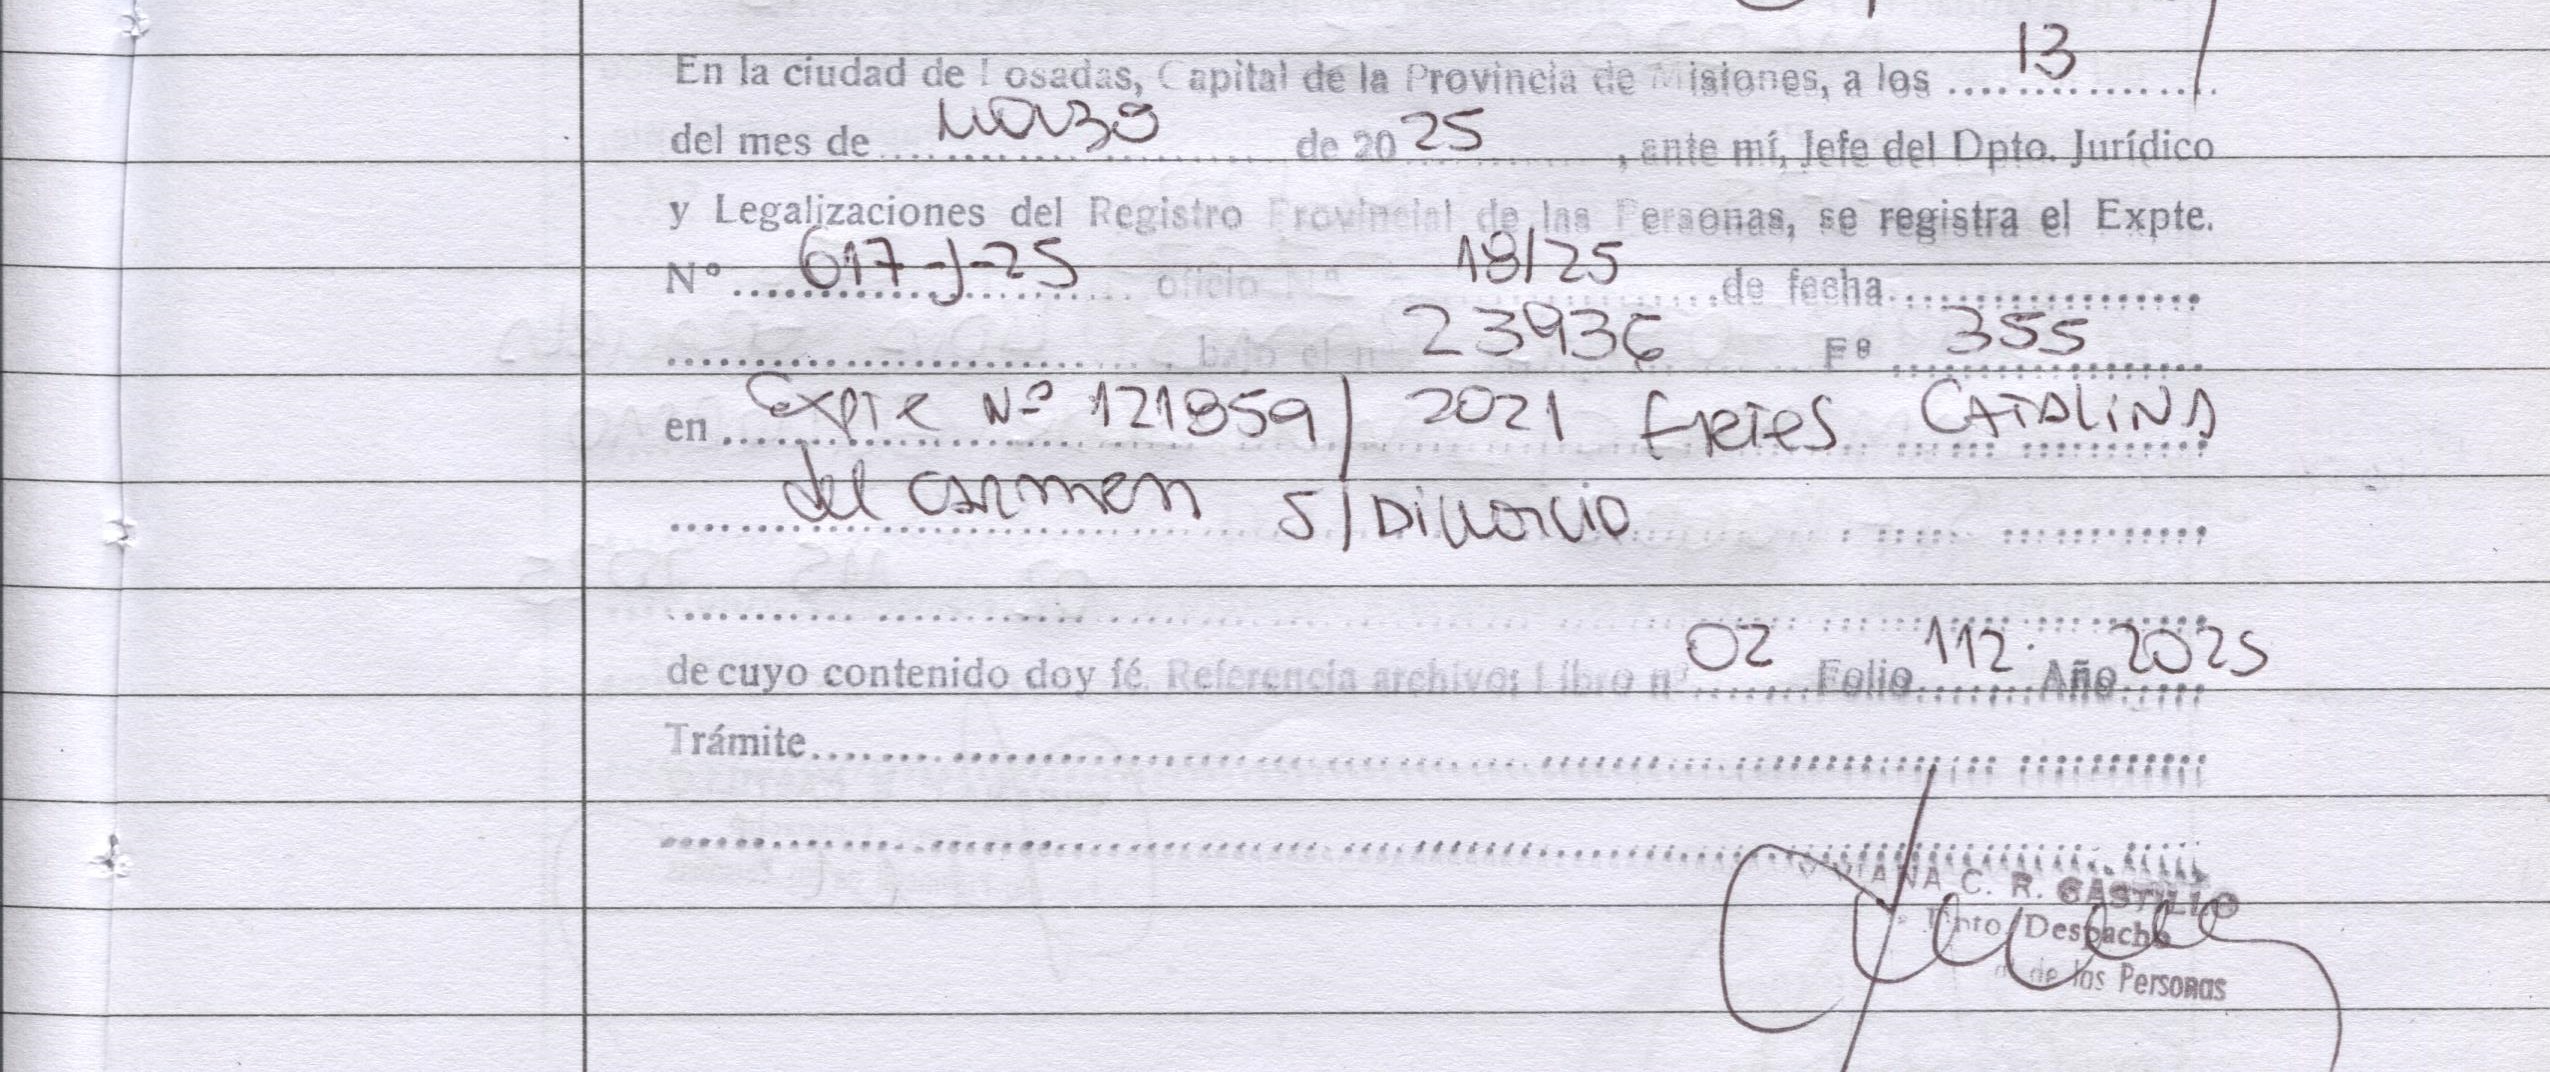 En la ciudad de Posadas, Capital de la Provincia de Misiones, a los 13
del mes de Marzo de 2025, ante mí, Jefe del Dpto. Jurídico
y Legalizaciones del Registro Provincial de las Personas, se registra el Expte.
Nº 617-J-25 oficio Nº 18/25 de fecha
bajo el nº 23936 Fº 355
en Expte Nº 121859/2021 Fretes CATALINA
del carmen S/Divorcio
de cuyo contenido doy fé. Referencia archivo: Libro nº 02 Folio 112. Año 2025
Trámite
C. R. CASTILLO
Dpto. Despacho
de las Personas